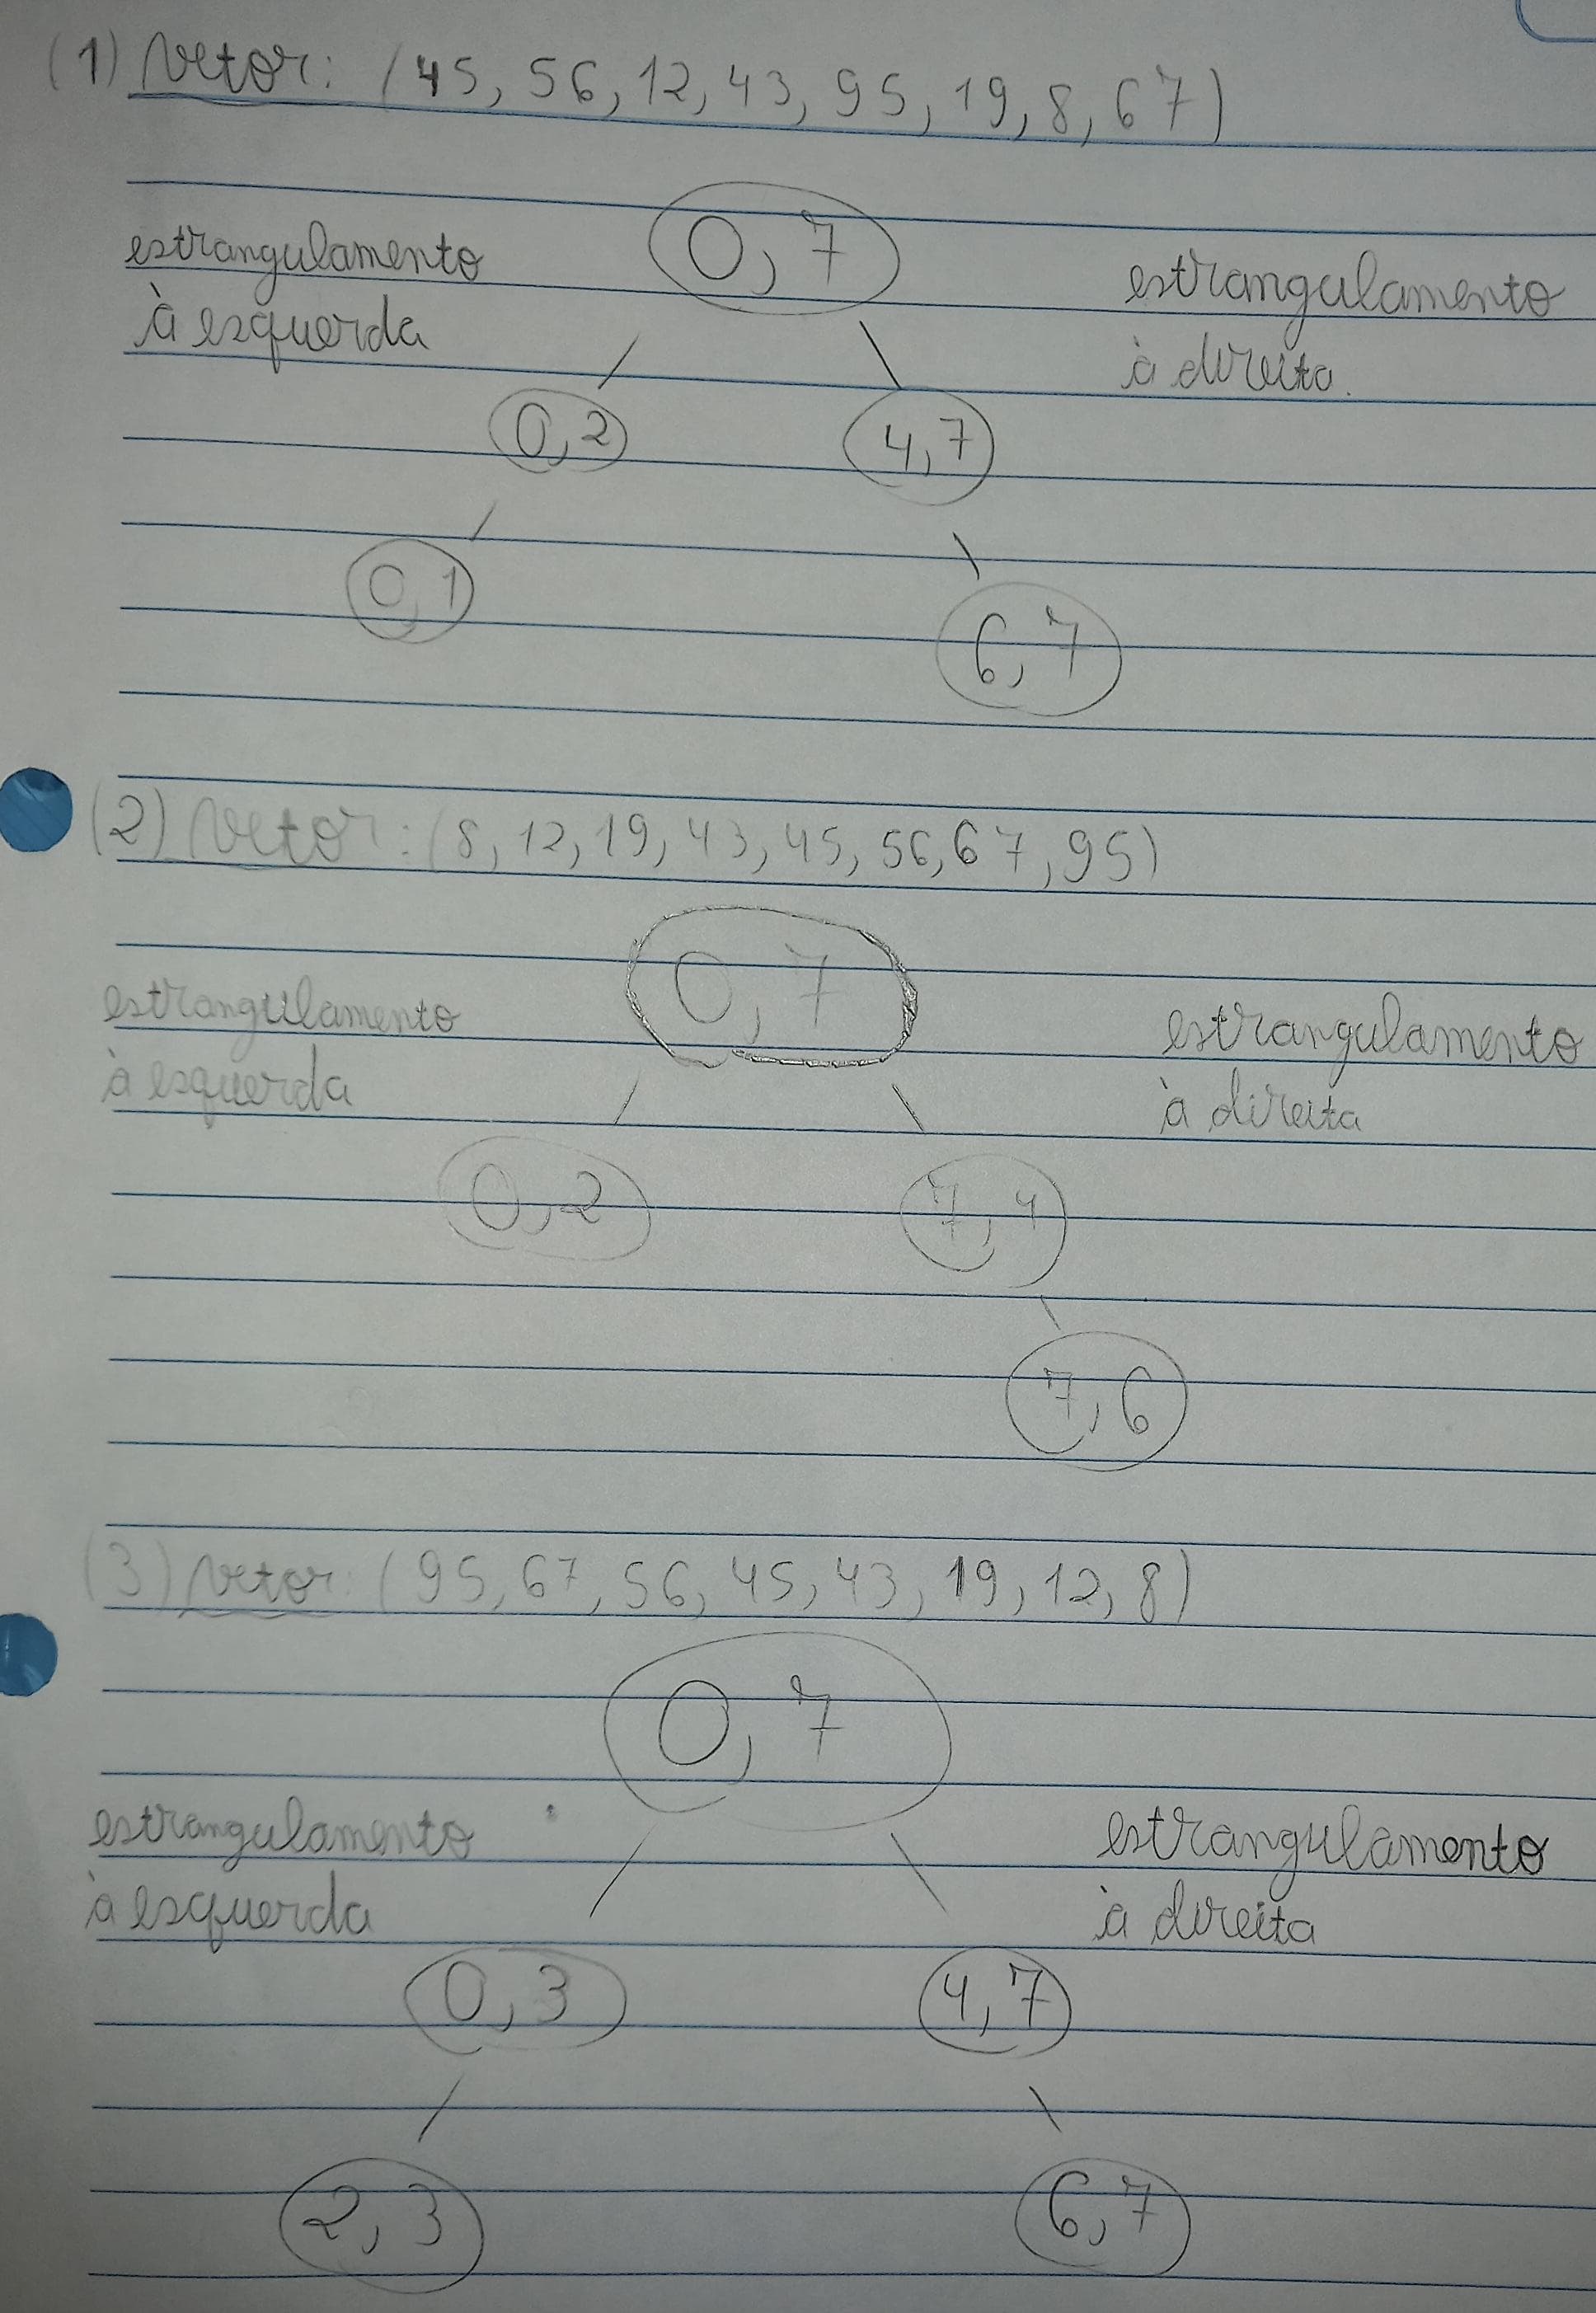 (1) Vetor: (45, 56, 12, 43, 95, 19, 8, 67)
0, 7
estrangulamento
à esquerda
estrangulamento
à direita.
0, 2
4, 7
0, 1
6, 7
(2) Vetor: (8, 12, 19, 43, 45, 56, 67, 95)
0, 7
estrangulamento
à esquerda
estrangulamento
à direita
0, 2
7, 4
7, 6
(3) Vetor: (95, 67, 56, 45, 43, 19, 12, 8)
0, 7
estrangulamento
à esquerda
estrangulamento
à direita
0, 3
4, 7
2, 3
6, 7